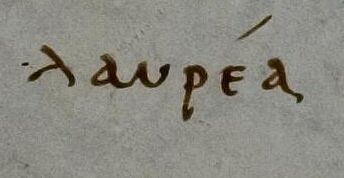 λαυρέα